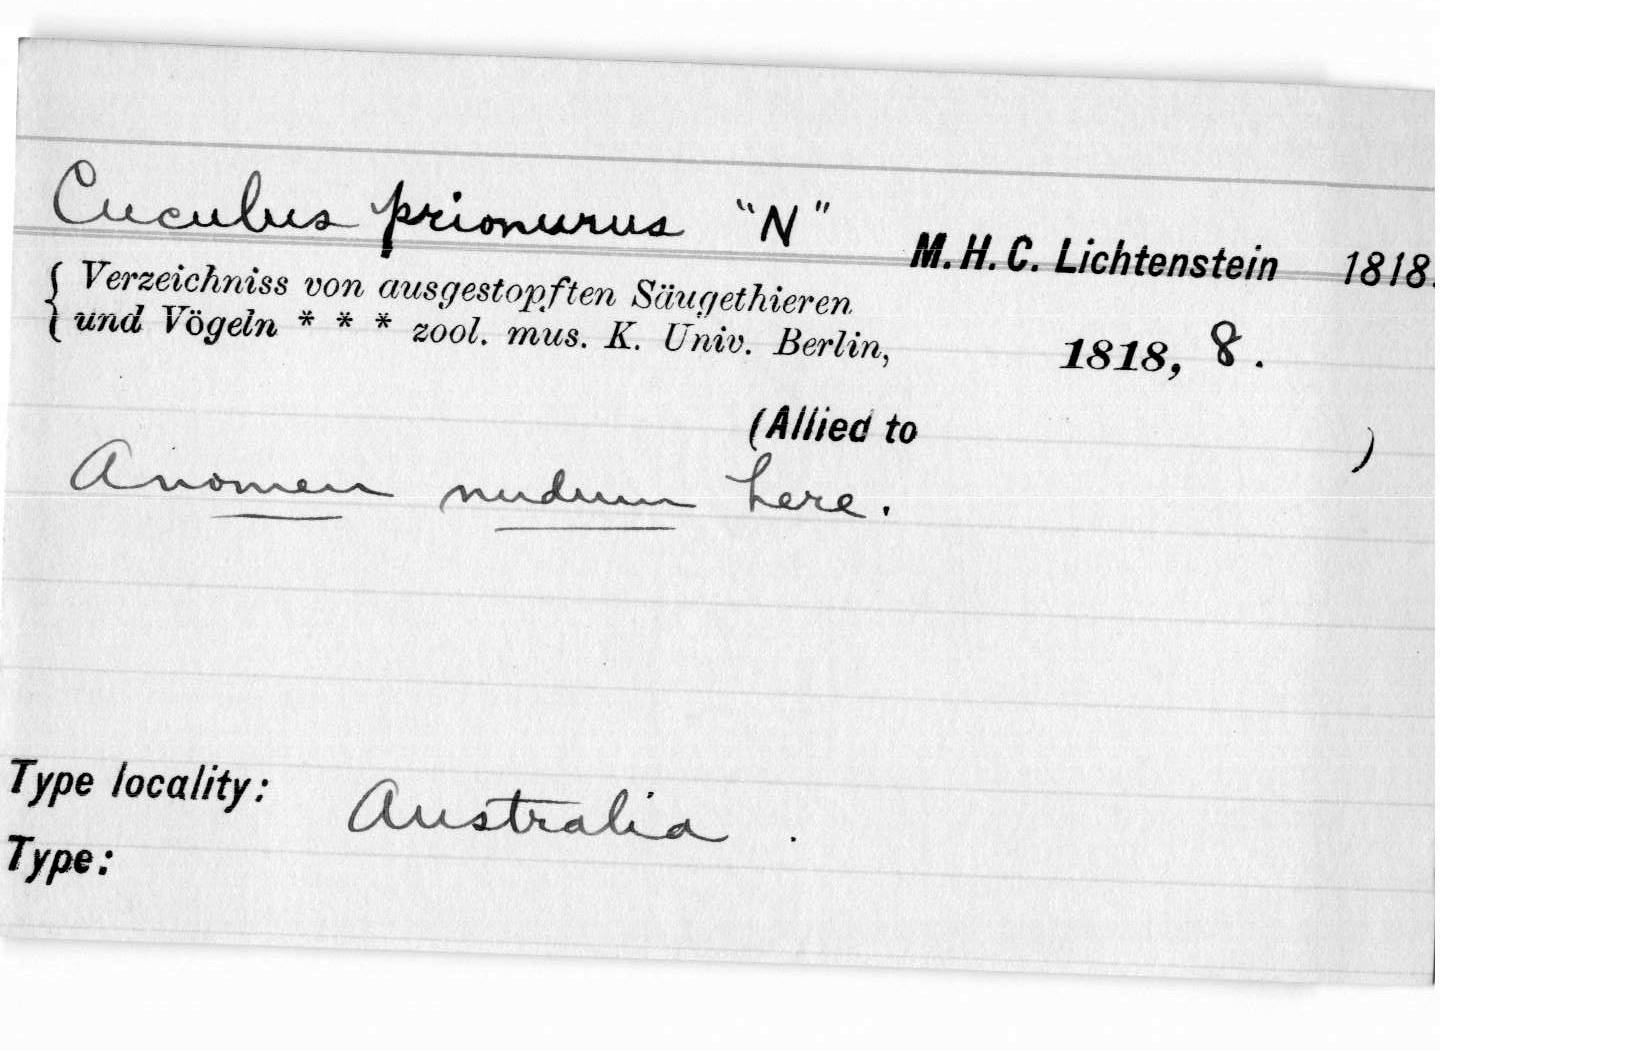 Cuculus prionurus "N" M. H. C. Lichtenstein 1818.
{ Verzeichniss von ausgestopften Säugethieren
und Vögeln * * * zool. mus. K. Univ. Berlin, 1818, 8.
(Allied to )
A nomen nudum here.
Type locality: Australia .
Type: